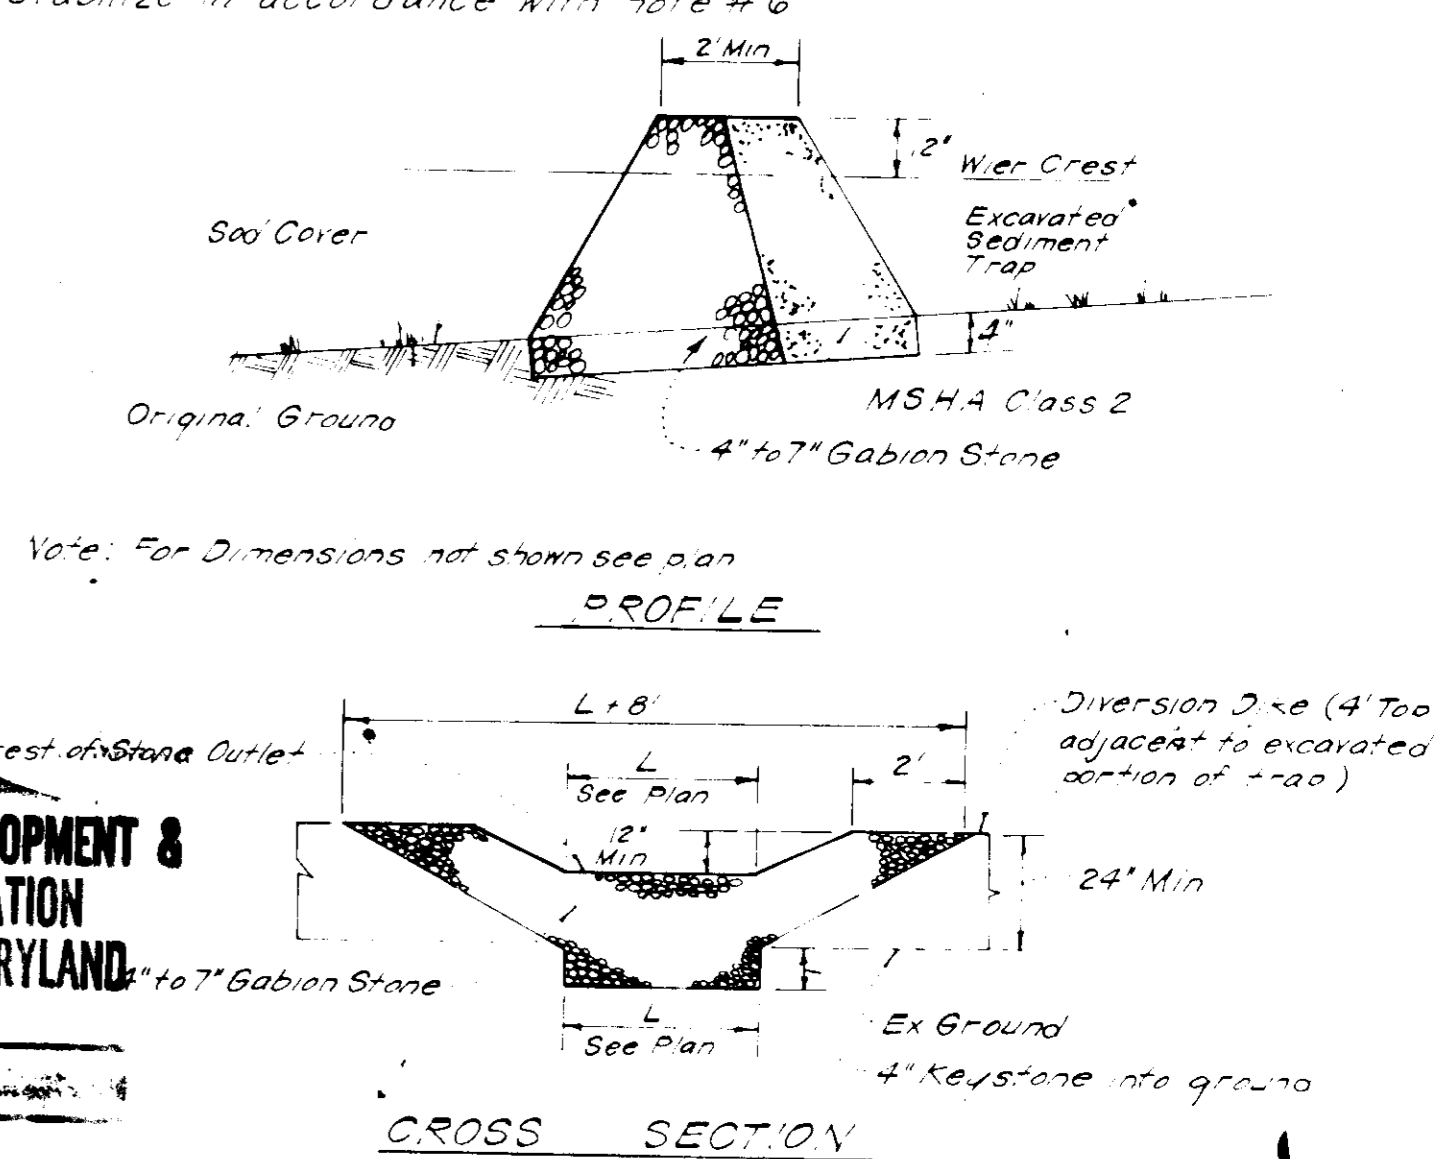 in accordance with note # 6
2' Min
2"
Wier Crest
Excavated
Sediment
Trap
Sod Cover
4"
Original Ground
MSHA Class 2
4" to 7" Gabion Stone
Note: For Dimensions not shown see plan
PROFILE
L + 8'
Diversion Dike (4' Top
adjacent to excavated
portion of trap)
rest of Stone Outlet
L
See Plan
2'
12"
Min
24" Min
OPMENT &
ATION
RYLAND
4" to 7" Gabion Stone
L
See Plan
Ex Ground
4" Keystone into ground
CROSS SECTION